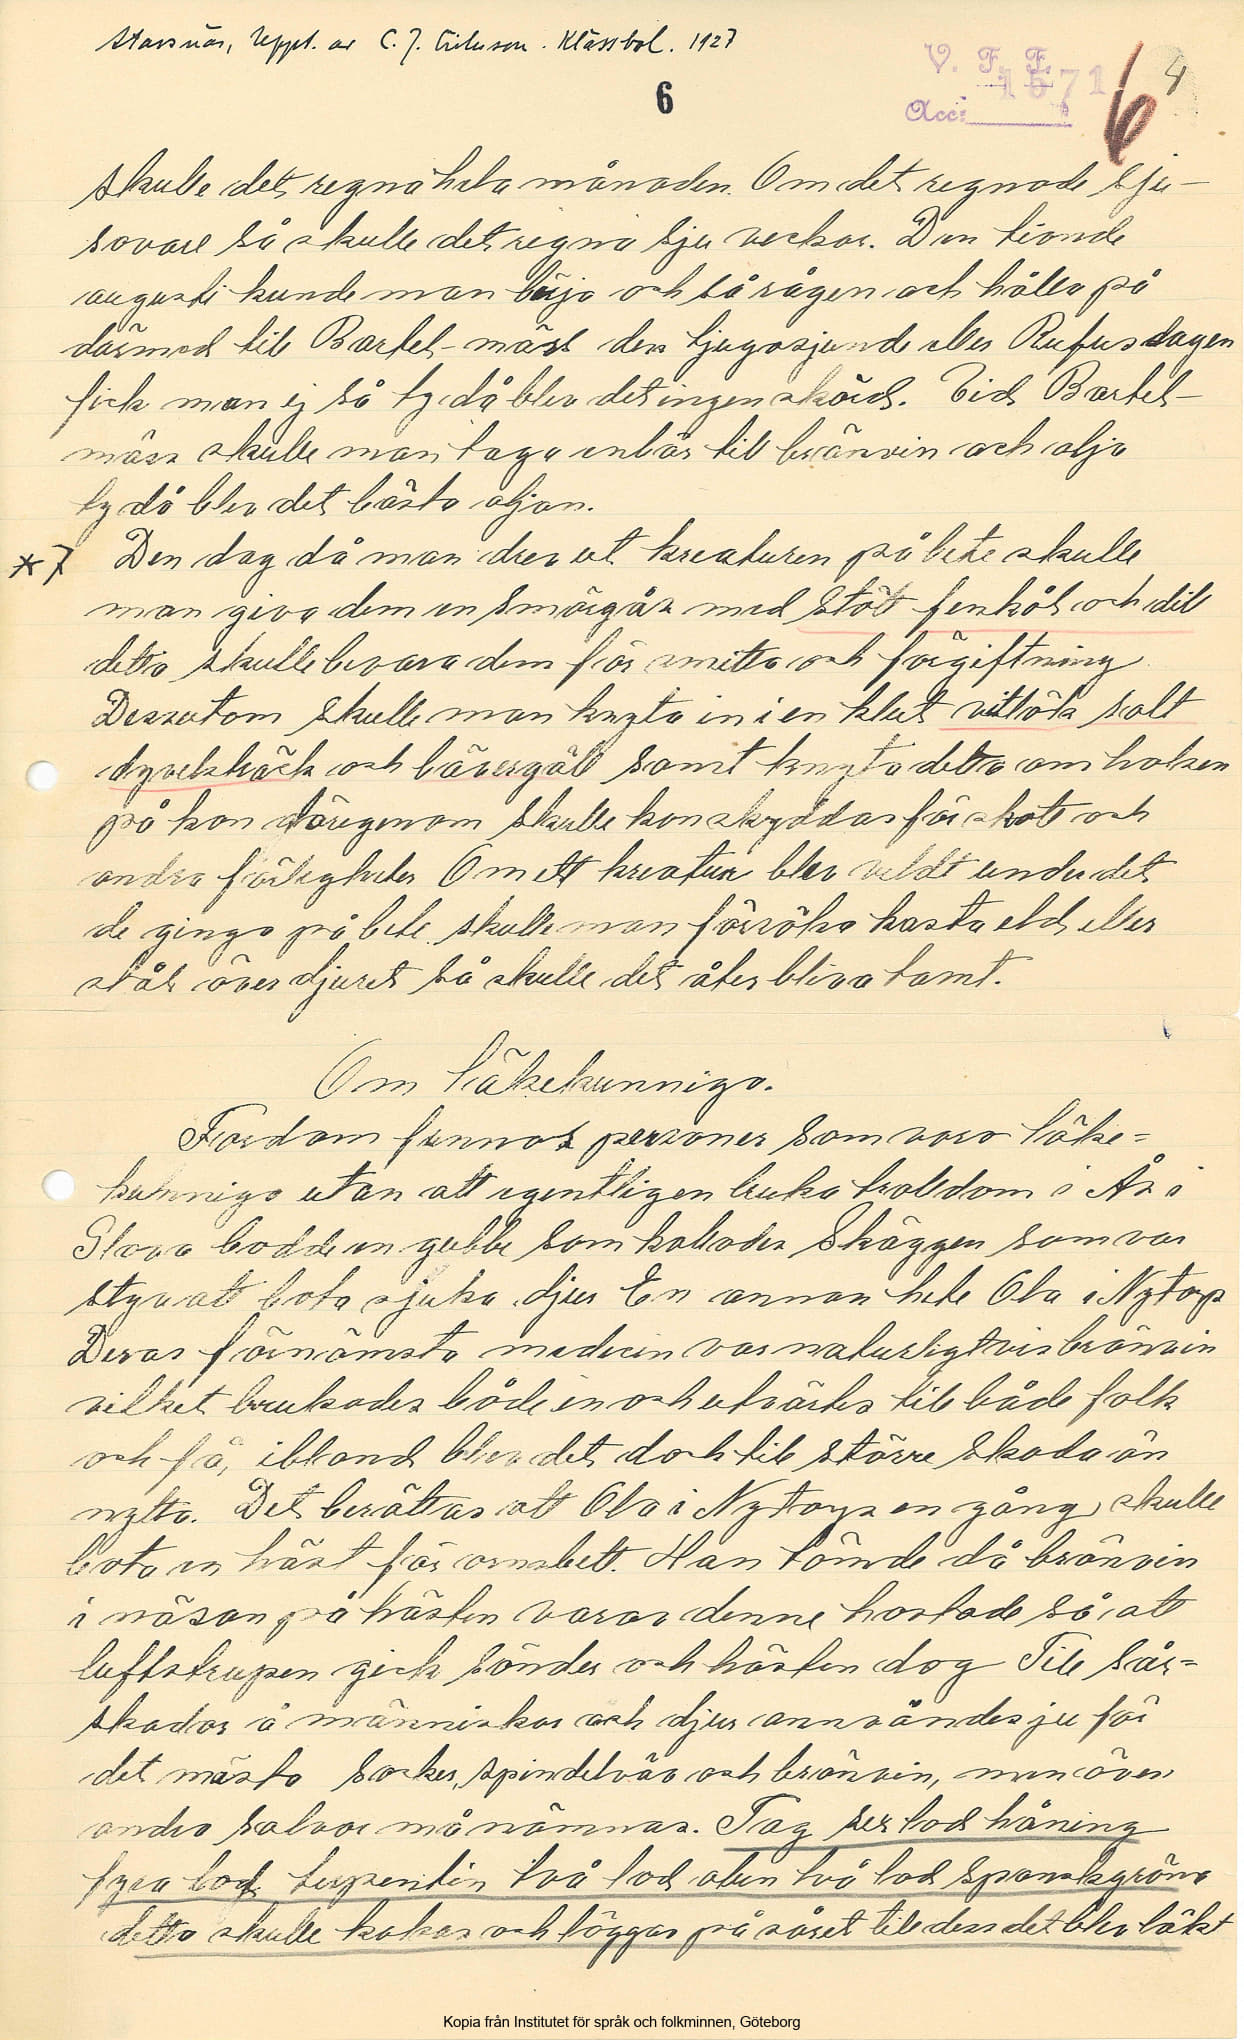 Stavnäs, Uppt. av C. J. Erikson. Klässbol. 1927
V. F. F.
1571
Acc:
6
6
4
skulle det regna hela månaden. Om det regnade sju-
sovare så skulle det regna sju veckor. Den tionde
augusti kunde man börja och så rågen och hålla på
därmed till Bartel-mäss den tjugosjunde eller Rufusdagen
fick man ej så ty då blev det ingen skörd. Vid Bartel-
mäss skulle man taga enbär till bränvin och olja
ty då blev det bästa oljan.
* 7 Den dag då man drev ut kreaturen på bete skulle
man giva dem en smörgås med stött fenkål och dill
detta skulle bevara dem för smitta och förgiftning
Dessutom skulle man knyta in i en klut vitlök salt
dyvelsträck och bävergäll samt knyta detta om halsen
på kon härigenom skulle kon skyddas för skott och
andra farligheter Om ett kreatur blev veldt under det
de gingo på bete skulle man försöka kasta eld eller
stål över djuret så skulle det åter bliva tamt.
Om läkekunniga.
Fordom funnos personer som voro läke=
kunniga utan att egentligen bruka trolldom i Ås i
Glava bodde en gubbe som kallades Skäggen som var
styv att bota sjuka djur En annan hete Ola i Nytorp
Deras förnämsta medicin var naturligtvis bränvin
vilket brukades både in och utvärtes till både folk
och fä, ibland blev det dock till större skada än
nytta. Det berättas att Ola i Nytorp en gång skulle
bota en häst för ormbett. Han tömde då bränvin
i näsan på hästen varav denne hostade så att
luftstrupen gick sönder och hästen dog Till sår=
skador å människor och djur användes ju för
det mästa socker, spindelväv och bränvin, men även
andra salvor må nämnas. Tag sex lod håning
fyra lod terpentin två lod alun två lod spanskgröna
detta skulle kokas och läggas på såret till dess det blev läkt
Kopia från Institutet för språk och folkminnen, Göteborg